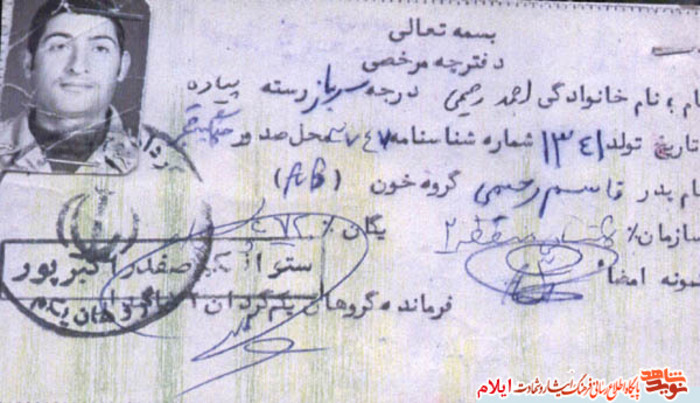 بسمه تعالی
دفترچه مرخصی
نام و نام خانوادگی احمد رحیمی درجه سرباز رسته پیاده
تاریخ تولد ۱۳۴۱ شماره شناسنامه محل صدور
نام پدر قاسم رحیمی گروه خون (AB)
سازمان٪ یگان٪
نمونه امضاء
ستوان یکم صفدر اکبرپور
فرمانده گروهان یکم گردان
شاهد
نوید
پایگاه اطلاع رسانی فرهنگ ایثار و شهادت ایلام